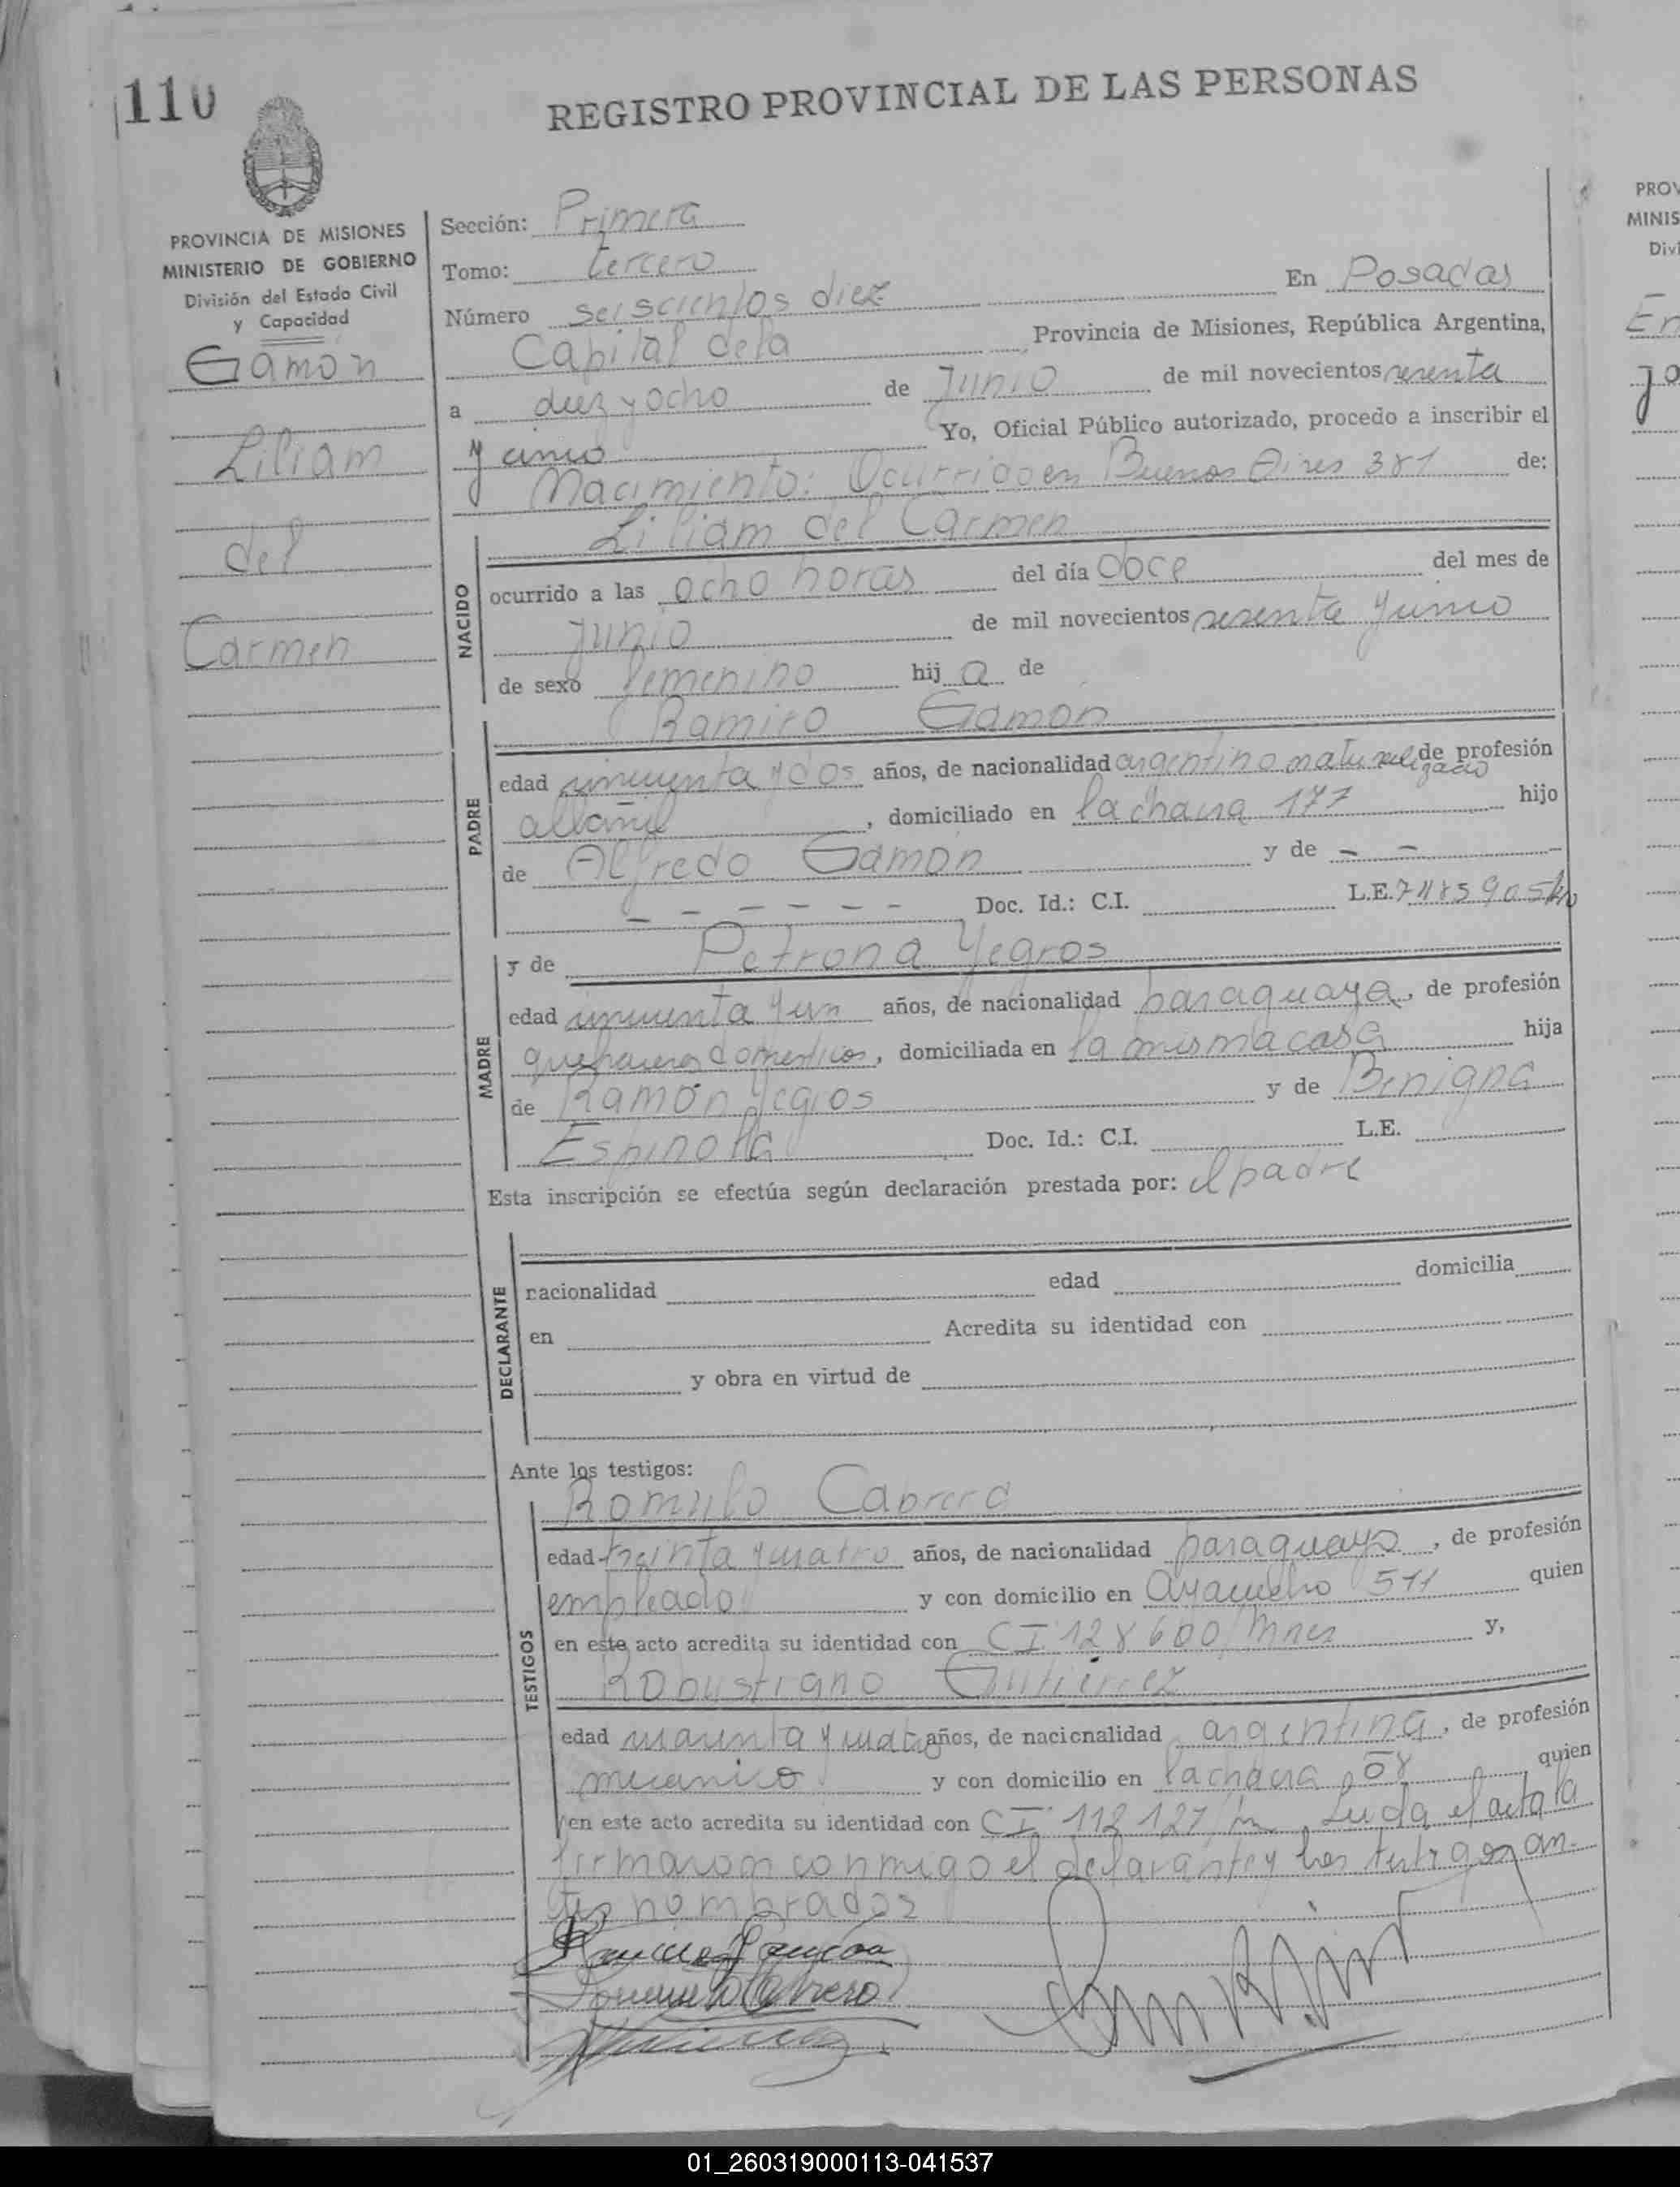 110
REGISTRO PROVINCIAL DE LAS PERSONAS
PROVINCIA DE MISIONES
MINISTERIO DE GOBIERNO
División del Estado Civil
y Capacidad
Gamón
Liliam
del
Carmen
Sección: Primera
Tomo: tercero
Número seiscientos diez En Posadas
Capital de la Provincia de Misiones, República Argentina,
a diez y ocho de Junio de mil novecientos sesenta
y cinco Yo, Oficial Público autorizado, procedo a inscribir el
Nacimiento: Ocurrido en Buenos Aires 381 de:
NACIDO
Liliam del Carmen
ocurrido a las ocho horas del día doce del mes de
Junio de mil novecientos sesenta y cinco
de sexo femenino hij a de
PADRE
Ramiro Gamon
edad cincuenta y dos años, de nacionalidad argentino naturalizado de profesión
albañil, domiciliado en la chacra 177 hijo
de Alfredo Gamon y de – –
– – – – – – Doc. Id.: C.I. L.E. 7485905
MADRE
y de Petrona Yegros
edad cincuenta y un años, de nacionalidad paraguaya, de profesión
quehaceres domesticos, domiciliada en la misma casa hija
de Ramón Yegros y de Benigna
Espinola Doc. Id.: C.I. L.E.
Esta inscripción se efectúa según declaración prestada por: el padre
DECLARANTE
nacionalidad edad domicilia
en Acredita su identidad con
y obra en virtud de
Ante los testigos:
TESTIGOS
Romulo Cabrera
edad treinta y cuatro años, de nacionalidad paraguayo, de profesión
empleado y con domicilio en Ayacucho 511 quien
en este acto acredita su identidad con CI 128600/Mnes y,
Robustiano Gutierrez
edad cuarenta y cuatro años, de nacionalidad argentina, de profesión
mecanico y con domicilio en la chacra 58 quien
en este acto acredita su identidad con CI 112127/m Leida el acta la
firmaron conmigo el declarante y los testigos an-
tes nombrados
PROV
MINIS
Divi
En
01_260319000113-041537